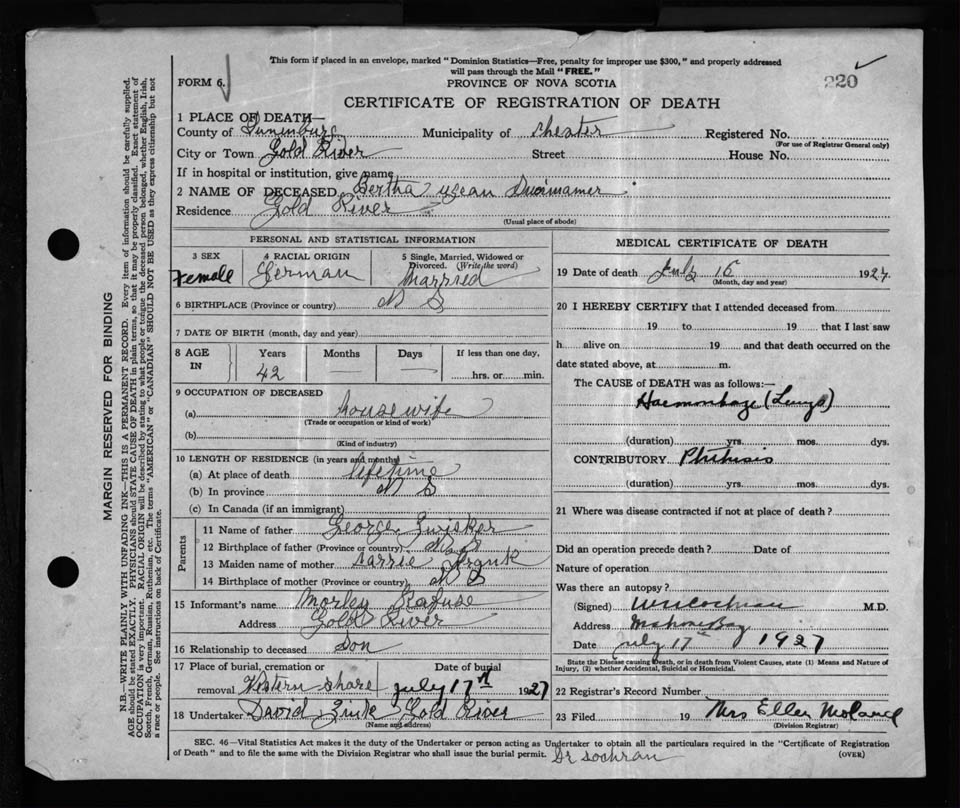 This form if placed in an envelope, marked "Dominion Statistics—Free, penalty for improper use $300," and properly addressed
will pass through the Mail "FREE."
FORM 6. PROVINCE OF NOVA SCOTIA 220
CERTIFICATE OF REGISTRATION OF DEATH
1 PLACE OF DEATH—
County of Lunenburg Municipality of Chester Registered No.
(For use of Registrar General only)
City or Town Gold River Street House No.
If in hospital or institution, give name
2 NAME OF DECEASED Bertha
Residence Gold River
(Usual place of abode)
PERSONAL AND STATISTICAL INFORMATION
3 SEX 4 RACIAL ORIGIN 5 Single, Married, Widowed or
Divorced. (Write the word)
Female German Married
6 BIRTHPLACE (Province or country) N S
7 DATE OF BIRTH (month, day and year)
8 AGE IN Years Months Days If less than one day,
42 — — hrs. or min.
9 OCCUPATION OF DECEASED
(a) housewife
(Trade or occupation or kind of work)
(b)
(Kind of industry)
10 LENGTH OF RESIDENCE (in years and months)
(a) At place of death lifetime
(b) In province N S
(c) In Canada (if an immigrant)
Parents
11 Name of father George Zwisker
12 Birthplace of father (Province or country) N S
13 Maiden name of mother Carrie Frank
14 Birthplace of mother (Province or country) N S
15 Informant's name Morley Rafuse
Address Gold River
16 Relationship to deceased Son
17 Place of burial, cremation or Date of burial
removal Western Shore July 17th 1927
18 Undertaker David Zink Gold River
(Name and address)
MEDICAL CERTIFICATE OF DEATH
19 Date of death July 16 1927.
(Month, day and year)
20 I HEREBY CERTIFY that I attended deceased from
19 to 19 that I last saw
h alive on 19 and that death occurred on the
date stated above, at m.
The CAUSE of DEATH was as follows:—
Haemorrhage (Lungs)
(duration) yrs. mos. dys.
CONTRIBUTORY Phthisis
(duration) yrs. mos. dys.
21 Where was disease contracted if not at place of death?
Did an operation precede death? Date of
Nature of operation
Was there an autopsy?
(Signed) Cochran M.D.
Address Mahone Bay
Date July 17th 1927
State the Disease causing Death, or in death from Violent Causes, state (1) Means and Nature of
Injury, (2) whether Accidental, Suicidal or Homicidal.
22 Registrar's Record Number
23 Filed 19 Mrs Ellen
(Division Registrar)
SEC. 46—Vital Statistics Act makes it the duty of the Undertaker or person acting as Undertaker to obtain all the particulars required in the "Certificate of Registration
of Death" and to file the same with the Division Registrar who shall issue the burial permit. Dr Cochran (OVER)
MARGIN RESERVED FOR BINDING
N.B.—WRITE PLAINLY WITH UNFADING INK—THIS IS A PERMANENT RECORD. Every item of information should be carefully supplied.
AGE should be stated EXACTLY. PHYSICIANS should STATE CAUSE OF DEATH in plain terms, so that it may be properly classified. Exact statement of
OCCUPATION is very important. RACIAL ORIGIN will be described by stating to what people or tongue the deceased person belonged, whether English, Irish,
Scotch, French, German, Russian, Ruthenian, etc. The terms "AMERICAN" or "CANADIAN" SHOULD NOT BE USED as they express citizenship but not
a race or people. See instructions on back of Certificate.